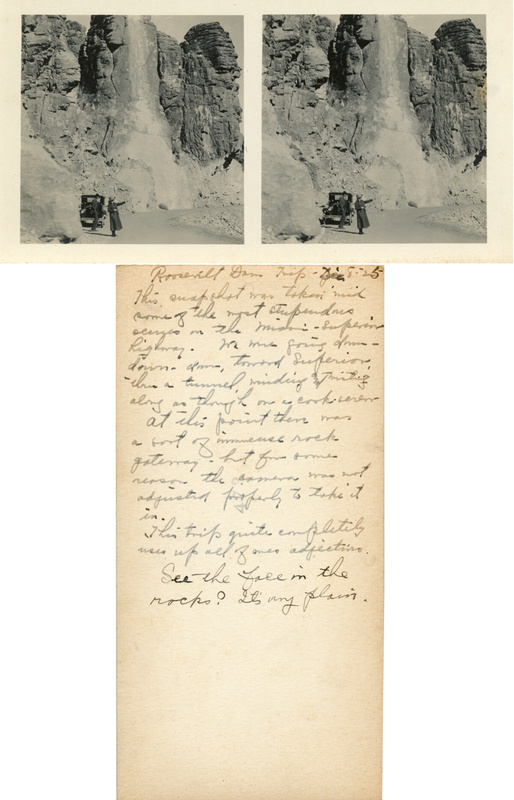 Roosevelt Dam Trip - 25
This snapshot was taken mid
some of the most stupendous
scenes on the Miami-Superior
highway. We were going down-
down-down, toward Superior,
thru a tunnel, winding & twisting
along as though on a cork-screw
At this point there was
a sort of immense rock
gateway - but for some
reason the camera was not
adjusted properly to take it
in.
This trip quite completely
uses up all of ones adjectives.
See the face in the
rocks? It's very plain.